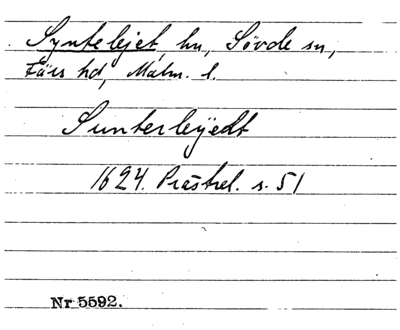 Syntelejet, hu, Sövde sn,
Färs hd, Malm. l.
Sunterleÿedt
1624. Prästrel. s. 51
Nr 5592.